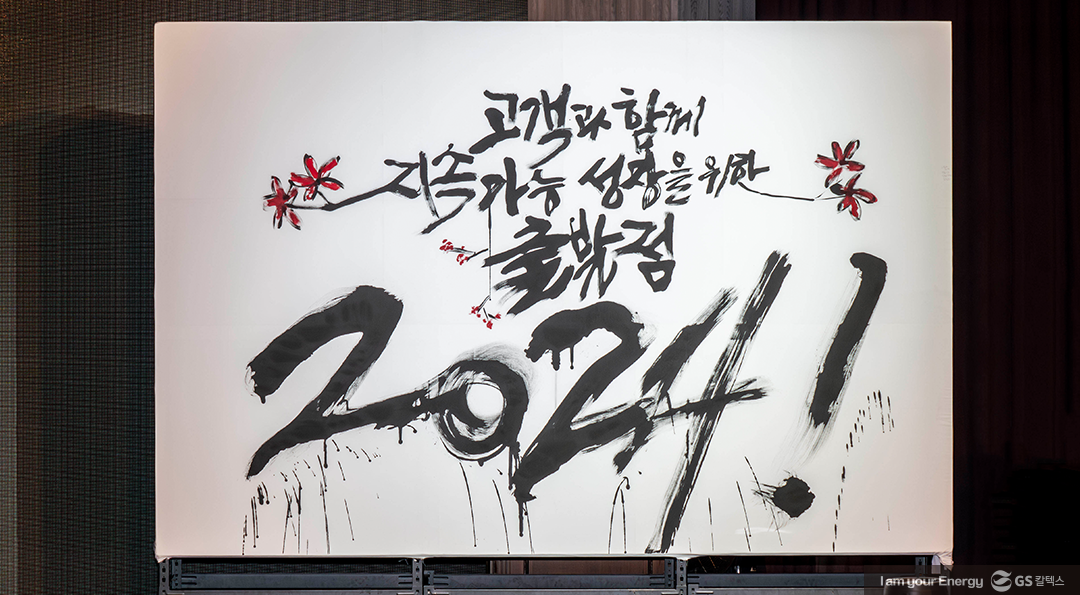 고객과 함께
지속가능 성장을 위한
출발점
2024!
I am your Energy GS칼텍스